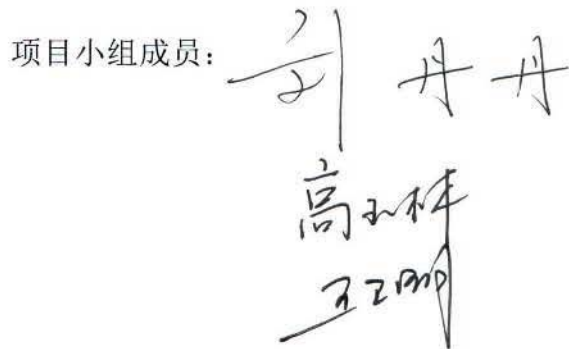 项目小组成员：刘丹丹
高玉林